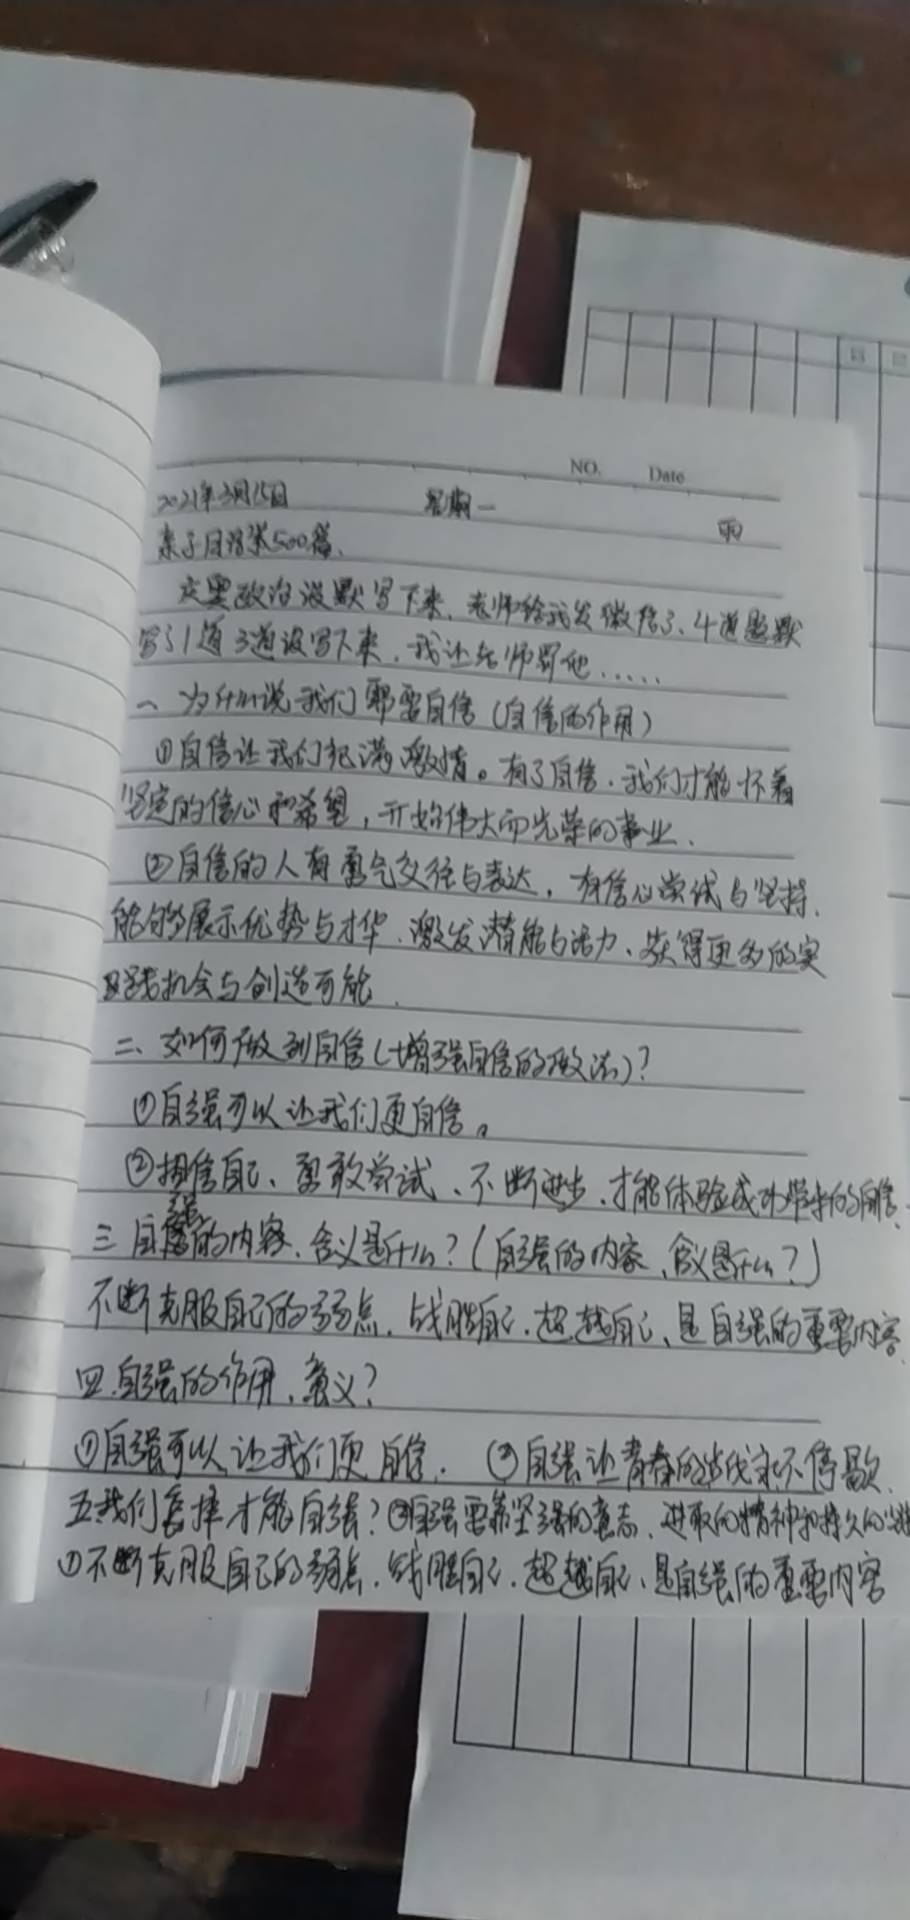 NO. Date
2021年3月15日 星期一 雨
亲子日记第500篇、
政治没默写下来，老师给我发微信了、4道题默
写了1道3道没写下来，我让老师罚他……
一、为什么说我们需要自信（自信的作用）
①自信让我们充满激情。有了自信，我们才能怀着
坚定的信心和希望，开始伟大而光荣的事业、
②自信的人有勇气交往与表达，有信心尝试与坚持、
能够展示优势与才华、激发潜能与活力、获得更多的实
践机会与创造可能、
二、如何做到自信（增强自信的做法）？
①自强可以让我们更自信。
②相信自己、勇敢尝试、不断进步、才能体验成功带来的自信、
三自强的内容、含义是什么？（自强的内容、含义是什么？）
不断克服自己的弱点、战胜自己、超越自己、是自强的重要内容
四.自强的作用、意义？
①自强可以让我们更自信. ②自强让青春的步伐永不停歇、
五我们怎样才能自强？②自强要靠坚强的意志、进取的精神和持久的
①不断克服自己的弱点、战胜自己、超越自己、是自强的重要内容